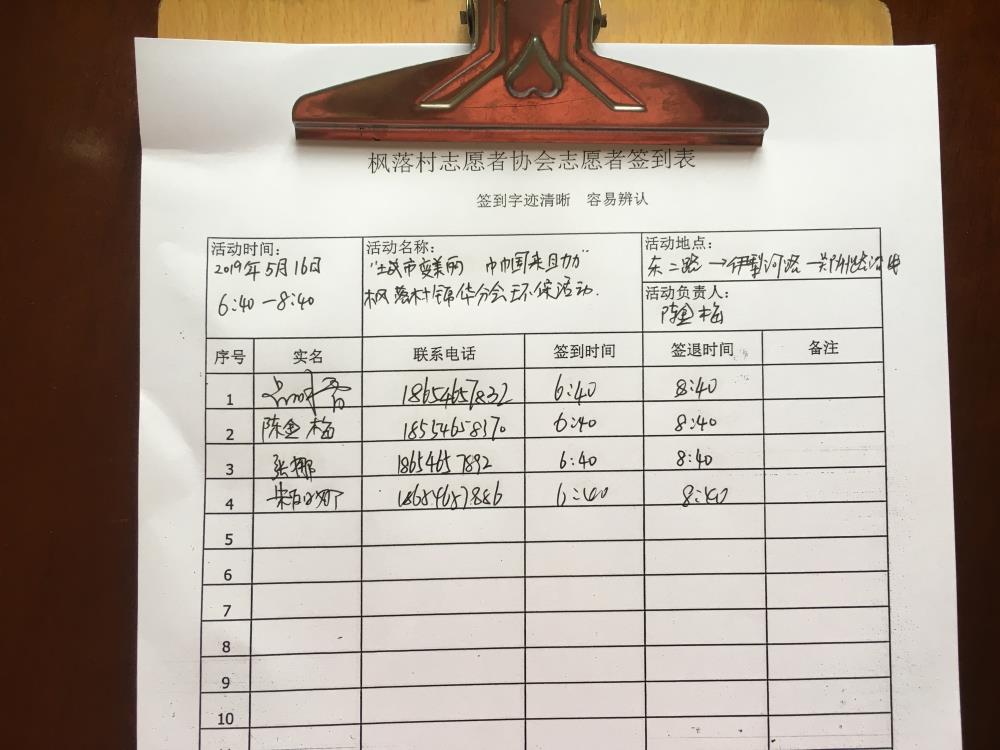 枫落村志愿者协会志愿者签到表
签到字迹清晰 容易辨认
活动时间:
2019年5月16日
6:40—8:40
活动名称:
"城市变美丽 巾帼来助力"
枫落村锦华分会环保活动.
活动地点:
东二路→伊犁河路
活动负责人:
陈金梅
序号 实名 联系电话 签到时间 签退时间 备注
1 18654657832 6:40 8:40
2 陈金梅 18554658370 6:40 8:40
3 张娜 18654657892 6:40 8:40
4 18654657886 6:40 8:40
5
6
7
8
9
10